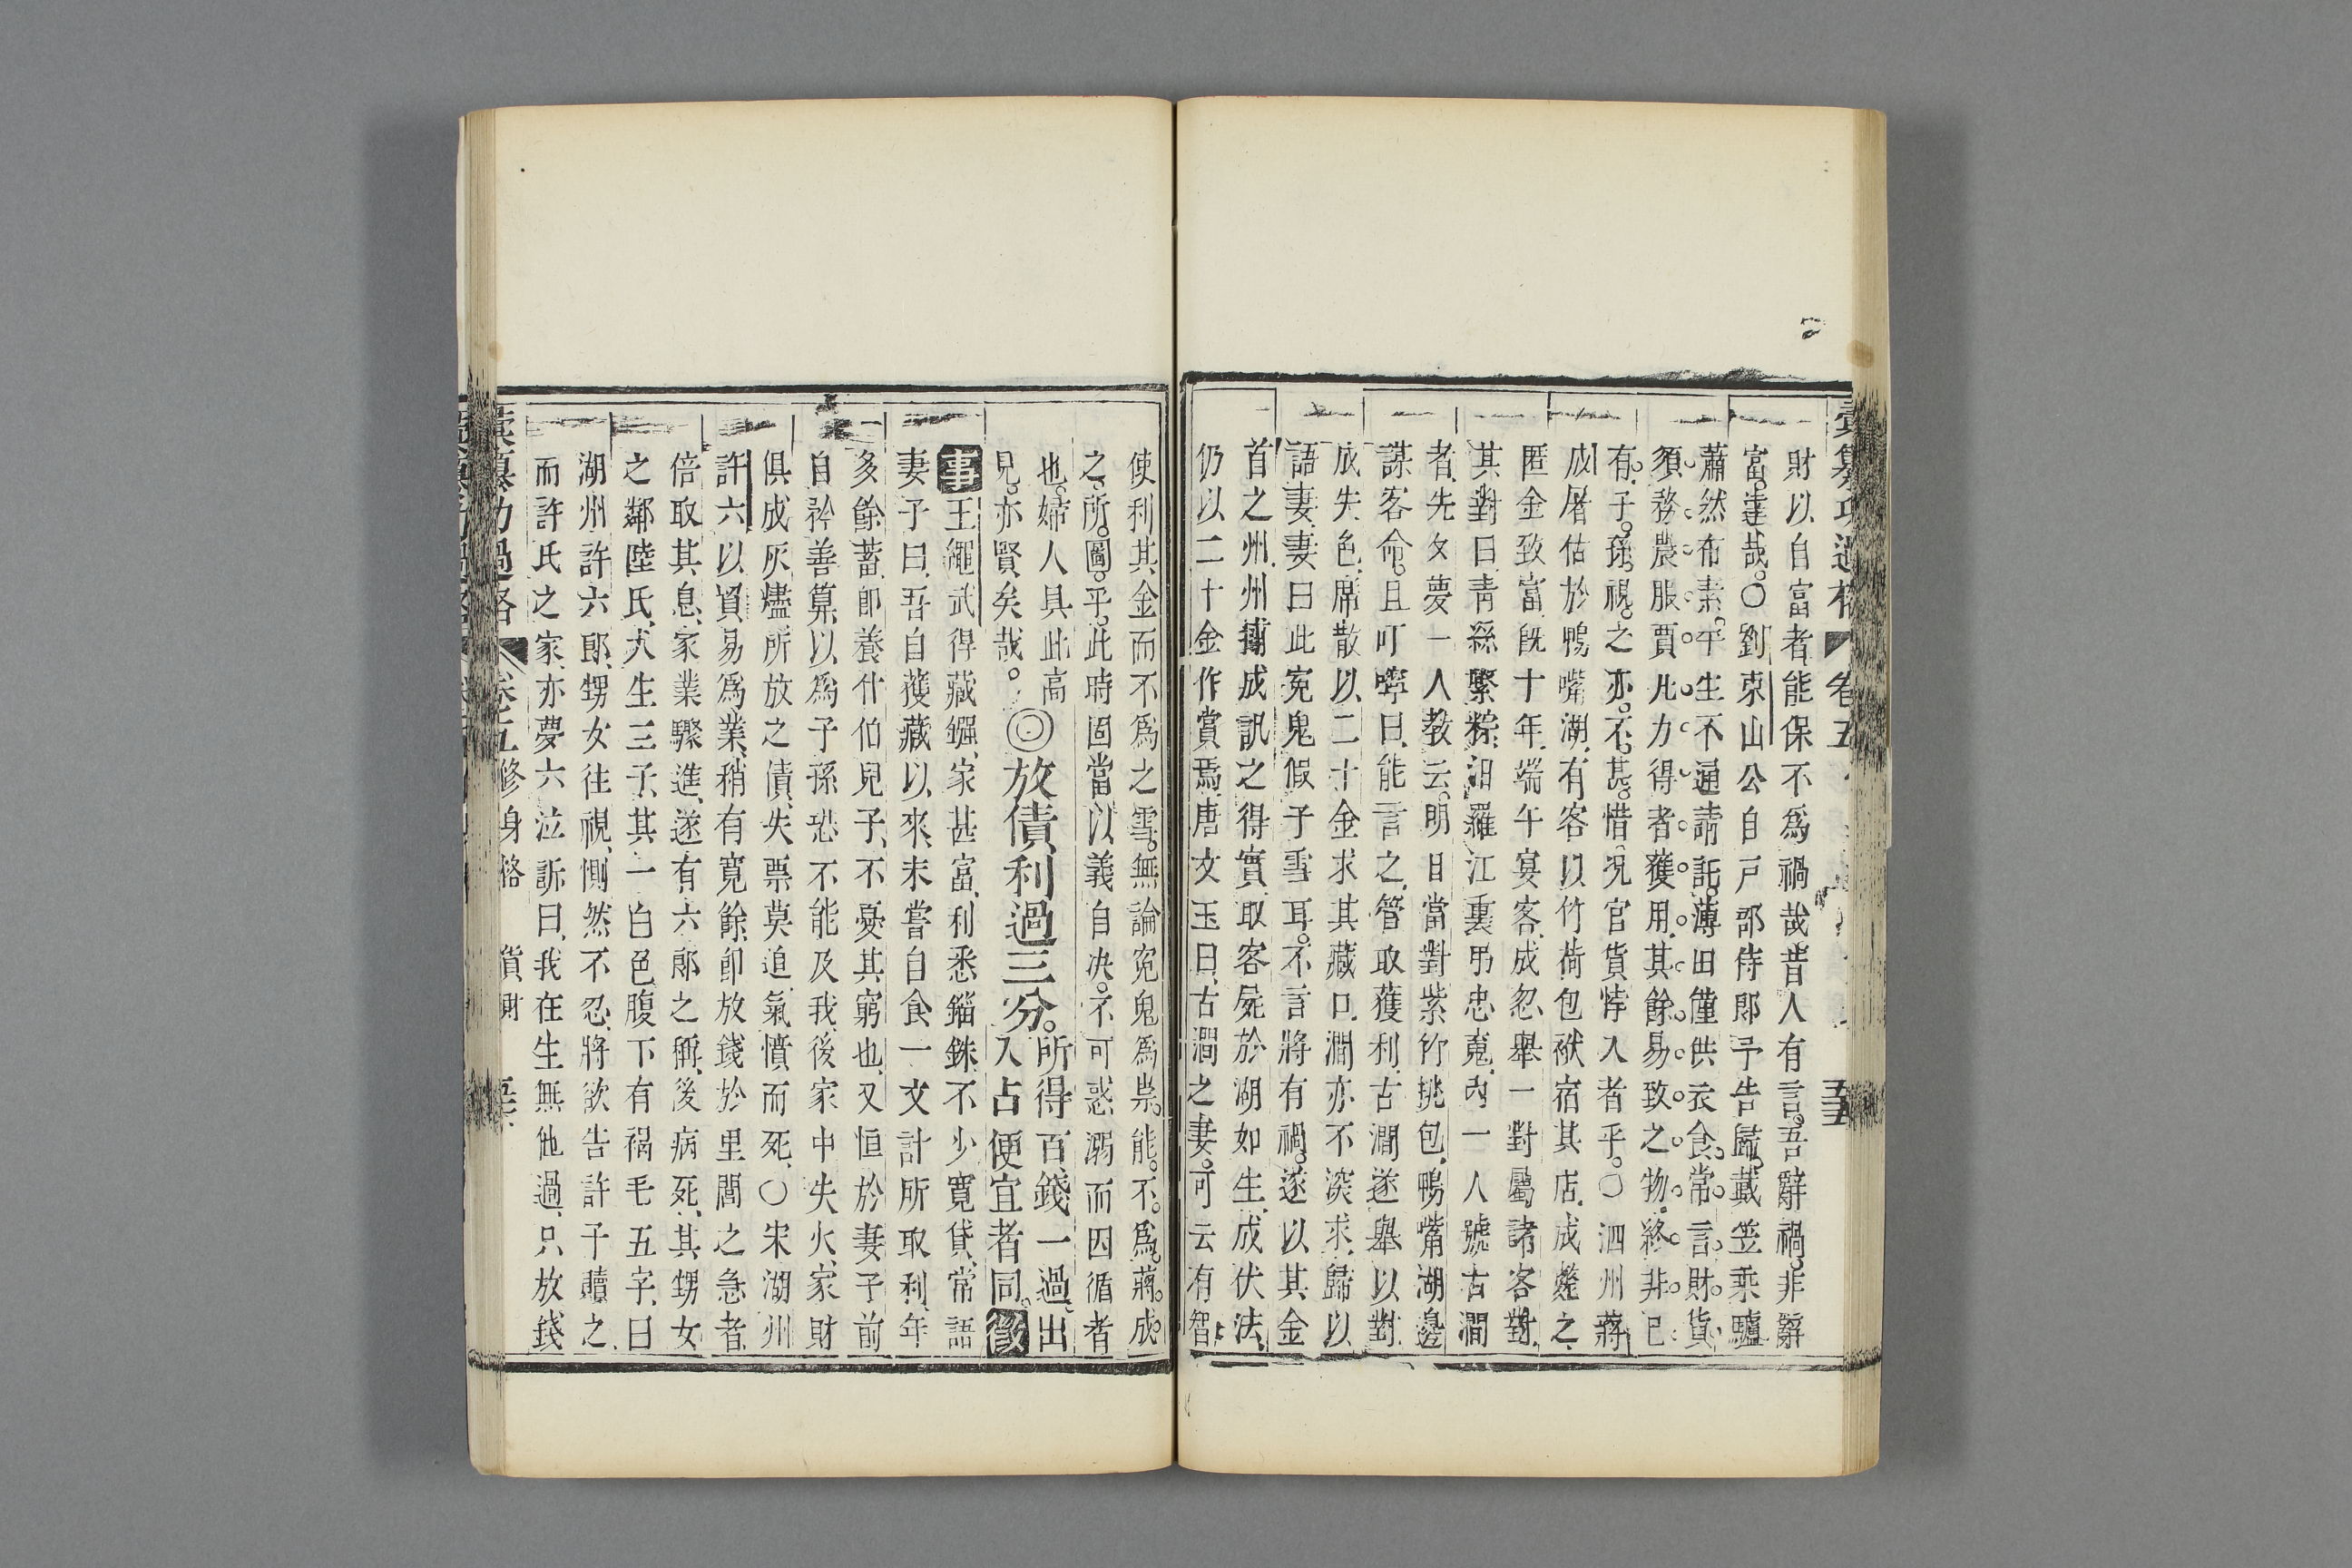 彙纂功過格 卷五
財以自富者能保不爲禍哉昔人有言吾辭禍非辭
富達哉○劉東山公自戸部侍郎予告歸戴笠乘驢
蕭然布素平生不通請託薄田僅供衣食常言財貨
須務農服賈凡力得者獲用其餘易致之物終非已
有子孫視之亦不甚惜况官貨悖入者乎○泗州蔣
成屠估於鴨嘴湖有客以竹荷包袱宿其店成斃之
匿金致富旣十年端午宴客成忽舉一對屬諸客對
其對曰靑絲繫粽汨羅江裏弔忠䰟內一人號古澗
者先夕夢一人教云明日當對紫竹挑包鴨嘴湖邊
謀客命且叮嚀曰能言之管取獲利古澗遂舉以對
成失色席散以二十金求其藏口澗亦不深求歸以
語妻妻曰此寃鬼假子雪耳不言將有禍遂以其金
首之州州捕成訊之得實取客屍於湖如生成伏法
仍以二十金作賞焉唐文玉曰古澗之妻可云有智
使利其金而不爲之雪無論寃鬼爲祟能不爲蔣成
之所圖乎此時固當以義自决不可惑溺而因循者
也婦人具此高
見亦賢矣哉
◎放債利過三分所得百錢一過出
入占便宜者同徵
事王繩武得藏鏹家甚富利悉錙銖不少寬貸常語
妻子曰吾自獲藏以來未嘗自食一文計所取利年
多餘蓄卽養什伯兒子不憂其窮也又恒於妻子前
自矜善算以爲子孫恐不能及我後家中失火家財
俱成灰燼所放之債失票莫追氣憤而死○宋湖州
許六以貿易爲業稍有寛餘卽放錢於里閭之急者
倍取其息家業驟進遂有六郎之稱後病死其甥女
之鄰陸氏犬生三子其一白色腹下有禍毛五字曰
湖州許六郎甥女往視惻然不忍將欲告許子贖之
而許氏之家亦夢六泣訴曰我在生無他過只放錢
彙纂功過格 卷五 修身格 貨財